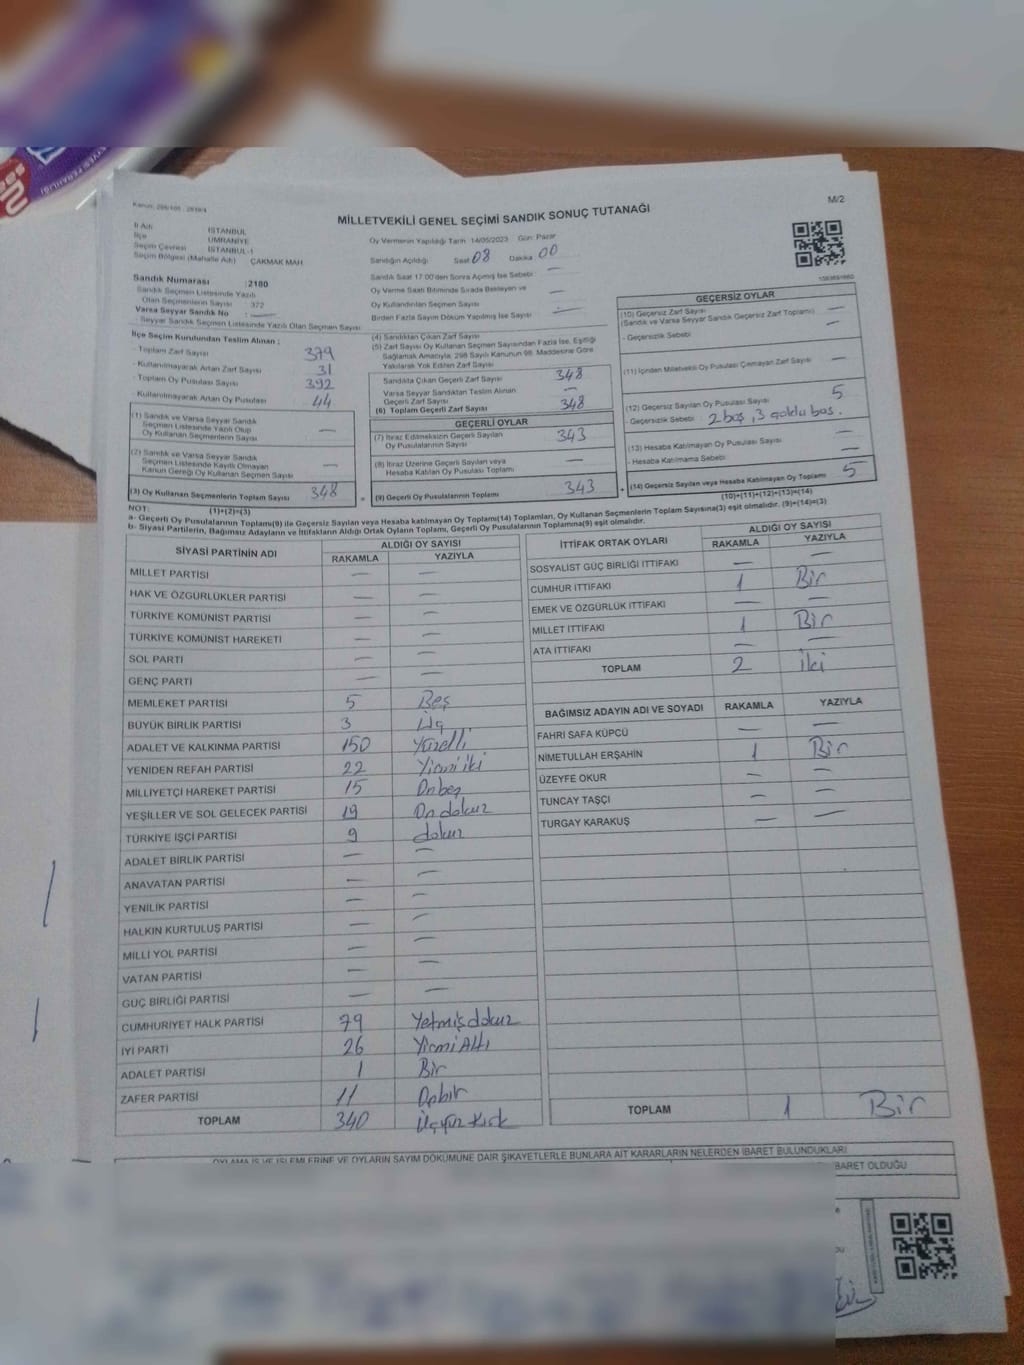 M/2
MİLLETVEKİLİ GENEL SEÇİMİ SANDIK SONUÇ TUTANAĞI
İl Adı İSTANBUL
İlçe ÜMRANİYE
Seçim Çevresi İSTANBUL-1
Seçim Bölgesi (Mahalle Adı) ÇAKMAK MAH.
Sandık Numarası : 2180
Sandık Seçmen Listesinde Yazılı
Olan Seçmenlerin Sayısı : 372
Varsa Seyyar Sandık No : —
- Seyyar Sandık Seçmen Listesinde Yazılı Olan Seçmen Sayısı
Oy Vermenin Yapıldığı Tarih 14/05/2023 Gün: Pazar
Sandığın Açıldığı Saat 08 Dakika 00
Sandık Saat 17:00'den Sonra Açılmış İse Sebebi —
Oy Verme Saati Bitiminde Sırada Bekleyen ve
Oy Kullandırılan Seçmen Sayısı —
Birden Fazla Sayım Döküm Yapılmış İse Sayısı —
İlçe Seçim Kurulundan Teslim Alınan :
- Toplam Zarf Sayısı 379
- Kullanılmayarak Artan Zarf Sayısı 31
- Toplam Oy Pusulası Sayısı 392
- Kullanılmayarak Artan Oy Pusulası 44
(1) Sandık ve Varsa Seyyar Sandık
Seçmen Listesinde Yazılı Olup
Oy Kullanan Seçmenlerin Sayısı —
(2) Sandık ve Varsa Seyyar Sandık
Seçmen Listesinde Kayıtlı Olmayan
Kanun Gereği Oy Kullanan Seçmen Sayısı —
(3) Oy Kullanan Seçmenlerin Toplam Sayısı 348
(4) Sandıktan Çıkan Zarf Sayısı
(5) Zarf Sayısı Oy Kullanan Seçmen Sayısından Fazla İse, Eşitliği
Sağlamak Amacıyla, 298 Sayılı Kanunun 98. Maddesine Göre
Yakılarak Yok Edilen Zarf Sayısı
Sandıkta Çıkan Geçerli Zarf Sayısı 348
Varsa Seyyar Sandıktan Teslim Alınan
Geçerli Zarf Sayısı —
(6) Toplam Geçerli Zarf Sayısı 348
GEÇERLİ OYLAR
(7) İtiraz Edilmeksizin Geçerli Sayılan
Oy Pusulalarının Sayısı 343
(8) İtiraz Üzerine Geçerli Sayılan veya
Hesaba Katılan Oy Pusulası Toplamı —
(9) Geçerli Oy Pusulalarının Toplamı 343
GEÇERSİZ OYLAR
(10) Geçersiz Zarf Sayısı —
(Sandık ve Varsa Seyyar Sandık Geçersiz Zarf Toplamı) —
- Geçersizlik Sebebi
(11) İçinden Milletvekili Oy Pusulası Çıkmayan Zarf Sayısı —
(12) Geçersiz Sayılan Oy Pusulası Sayısı 5
- Geçersizlik Sebebi : 2 boş, 3 çoklu bas.
(13) Hesaba Katılmayan Oy Pusulası Sayısı —
- Hesaba Katılmama Sebebi: —
(14) Geçersiz Sayılan veya Hesaba Katılmayan Oy Toplamı 5
NOT: (1)+(2)=(3) (10)+(11)+(12)+(13)=(14)
a- Geçerli Oy Pusulalarının Toplamı(9) ile Geçersiz Sayılan veya Hesaba katılmayan Oy Toplamı(14) Toplamları, Oy Kullanan Seçmenlerin Toplam Sayısına(3) eşit olmalıdır. (9)+(14)=(3)
b- Siyasi Partilerin, Bağımsız Adayların ve İttifakların Aldığı Ortak Oyların Toplamı, Geçerli Oy Pusulalarının Toplamına(9) eşit olmalıdır.
SİYASİ PARTİNİN ADI ALDIĞI OY SAYISI
RAKAMLA YAZIYLA
MİLLET PARTİSİ — —
HAK VE ÖZGÜRLÜKLER PARTİSİ — —
TÜRKİYE KOMÜNİST PARTİSİ — —
TÜRKİYE KOMÜNİST HAREKETİ — —
SOL PARTİ — —
GENÇ PARTİ — —
MEMLEKET PARTİSİ 5 Beş
BÜYÜK BİRLİK PARTİSİ 3 Üç
ADALET VE KALKINMA PARTİSİ 150 Yüzelli
YENİDEN REFAH PARTİSİ 22 Yirmi iki
MİLLİYETÇİ HAREKET PARTİSİ 15 Onbeş
YEŞİLLER VE SOL GELECEK PARTİSİ 19 On dokuz
TÜRKİYE İŞÇİ PARTİSİ 9 dokuz
ADALET BİRLİK PARTİSİ — —
ANAVATAN PARTİSİ — —
YENİLİK PARTİSİ — —
HALKIN KURTULUŞ PARTİSİ — —
MİLLİ YOL PARTİSİ — —
VATAN PARTİSİ — —
GÜÇ BİRLİĞİ PARTİSİ — —
CUMHURİYET HALK PARTİSİ 79 Yetmişdokuz
İYİ PARTİ 26 Yirmi Altı
ADALET PARTİSİ 1 Bir
ZAFER PARTİSİ 11 Onbir
TOPLAM 340 Üçyüz Kırk
İTTİFAK ORTAK OYLARI ALDIĞI OY SAYISI
RAKAMLA YAZIYLA
SOSYALİST GÜÇ BİRLİĞİ İTTİFAKI — —
CUMHUR İTTİFAKI 1 Bir
EMEK VE ÖZGÜRLÜK İTTİFAKI — —
MİLLET İTTİFAKI 1 Bir
ATA İTTİFAKI — —
TOPLAM 2 iki
BAĞIMSIZ ADAYIN ADI VE SOYADI RAKAMLA YAZIYLA
FAHRİ SAFA KÜPCÜ — —
NİMETULLAH ERŞAHİN 1 Bir
ÜZEYFE OKUR — —
TUNCAY TAŞÇI — —
TURGAY KARAKUŞ — —
TOPLAM 1 Bir
OYLAMA İŞ VE İŞLEMLERİNE VE OYLARIN SAYIM DÖKÜMÜNE DAİR ŞİKAYETLERLE BUNLARA AİT KARARLARIN NELERDEN İBARET BULUNDUKLARI
BARET OLDUĞU